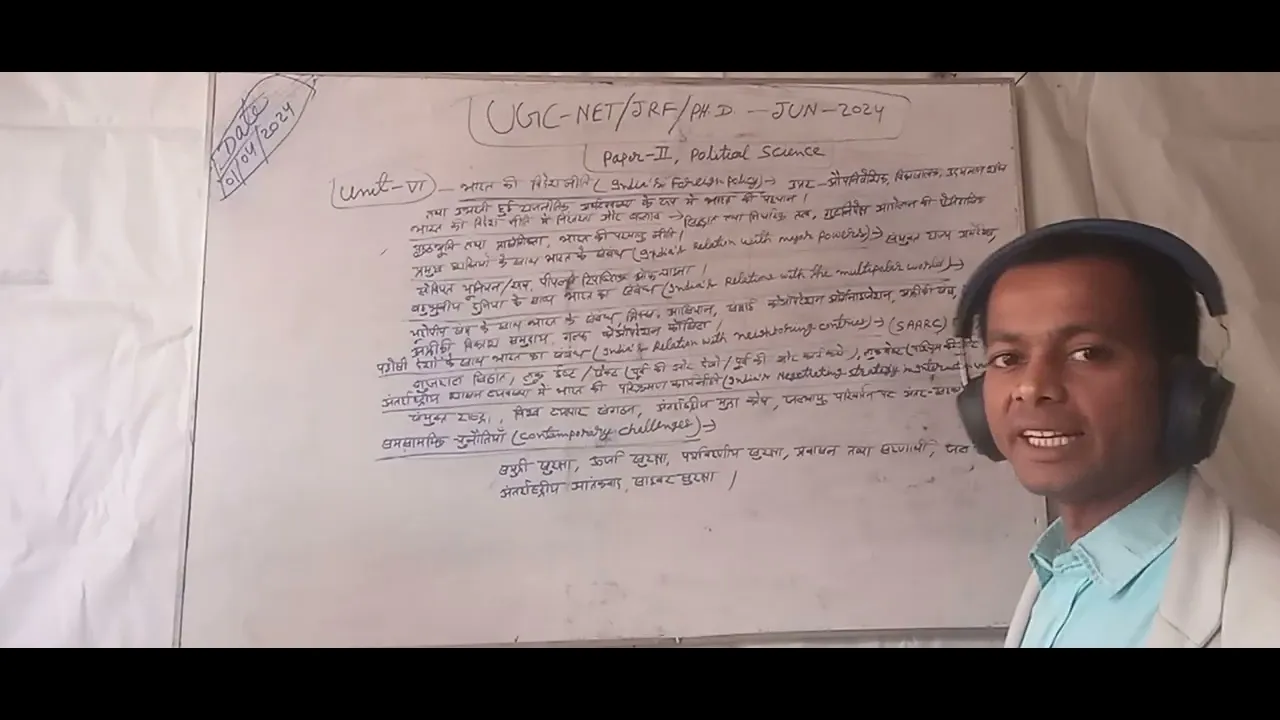 Date
01/04/2024
UGC-NET/JRF/PH.D. - JUN-2024
Paper-II, Political Science
Unit-VI - भारत की विदेश नीति (India's Foreign Policy) → उत्तर-औपनिवेशिक, विकासशील,
तथा उभरती हुई राजनीतिक अर्थव्यवस्था के रूप में भारत की पहचान।
भारत की विदेश नीति में निरंतरता और बदलाव → सिद्धांत तथा निर्धारक तत्व, गुटनिरपेक्ष आंदोलन की ऐतिहासिक
पृष्ठभूमि तथा प्रासंगिकता, भारत की परमाणु नीति।
प्रमुख शक्तियों के साथ भारत के संबंध (India's Relation with major Powers) → संयुक्त राज्य अमेरिका,
सोवियत यूनियन/रूस, पीपल्स रिपब्लिक ऑफ चाइना।
बहुध्रुवीय दुनिया के साथ भारत का संबंध (India's Relations with the multipolar world) →
यूरोपीय संघ के साथ भारत के संबंध, ब्रिक्स, आसियान, शंघाई कोऑपरेशन ऑर्गनाइजेशन, अफ्रीकी संघ,
अफ्रीकी विकास समुदाय, गल्फ कोऑपरेशन कौंसिल।
पड़ोसी देशों के साथ भारत का संबंध (India's Relation with neighbouring contries) → (SAARC)
गुजराल सिद्धांत, लुक ईस्ट / एक्ट (पूर्व की ओर देखो / पूर्व की ओर कार्य करो), लुक वेस्ट
अंतर्राष्ट्रीय शासन व्यवस्था में भारत की परिक्रामण कार्यनीति (India's Negotiating strategy
संयुक्त राष्ट्र, विश्व व्यापार संगठन, अंतर्राष्ट्रीय मुद्रा कोष, जलवायु परिवर्तन पर अंतर-सरकारी
समसामयिक चुनौतियाँ (contemporary challenges) →
समुद्री सुरक्षा, ऊर्जा सुरक्षा, पर्यावरणीय सुरक्षा, प्रवासन तथा शरणार्थी, जल
अंतर्राष्ट्रीय आतंकवाद, साइबर सुरक्षा।